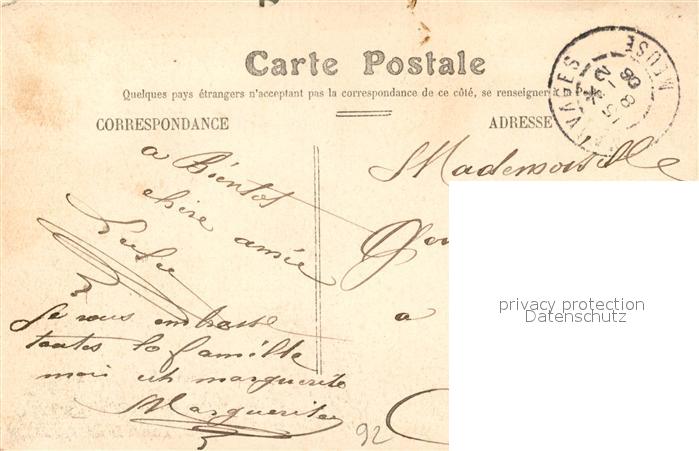 Carte Postale
Quelques pays étrangers n'acceptant pas la correspondance de ce côté, se renseigner
CORRESPONDANCE
ADRESSE
VAGES MEUSE
15 8
06
a Biéntot
chère amée
Mademoiselle
a
je vous embrasse
toutes la famille
moi et marguerite
Marguerite
92
privacy protection
Datenschutz